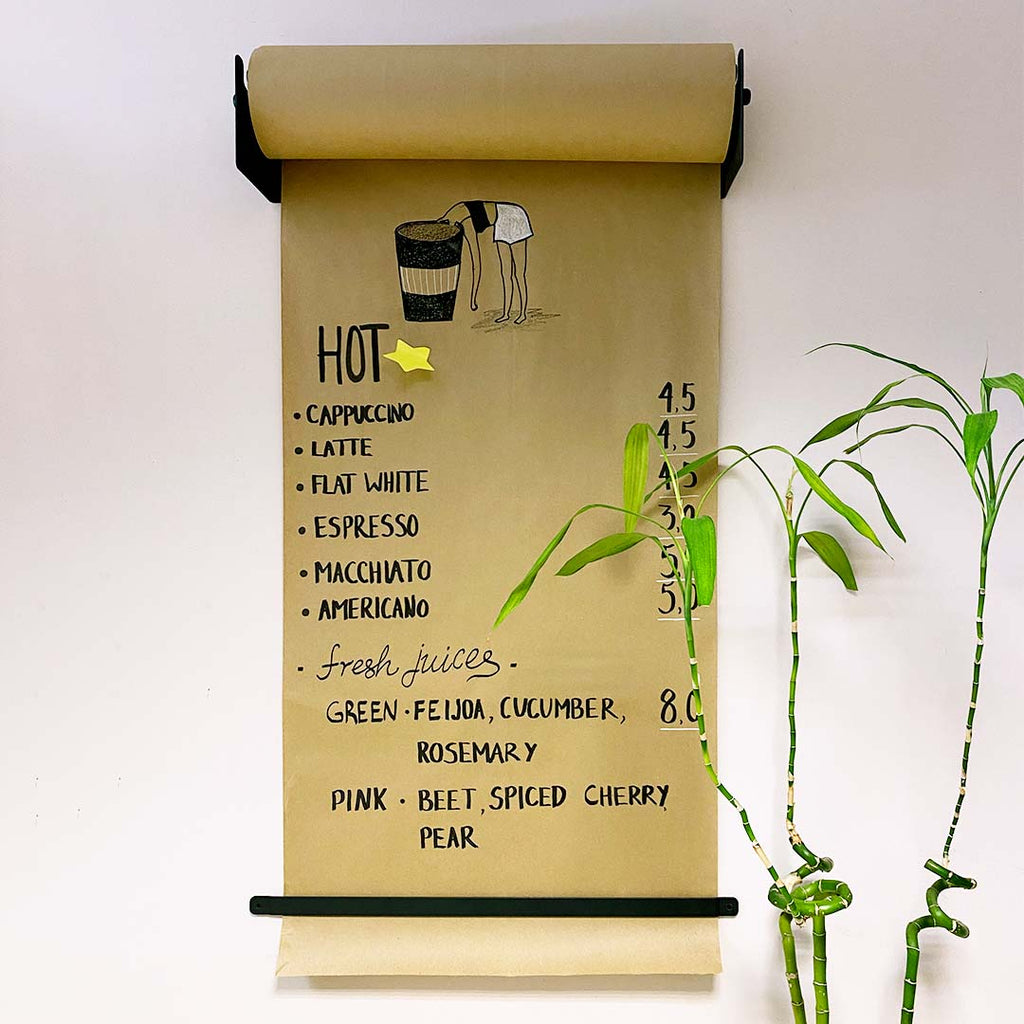 HOT
• CAPPUCCINO 4,5
• LATTE 4,5
• FLAT WHITE 4,5
• ESPRESSO 3,0
• MACCHIATO
• AMERICANO 5,0
- fresh juices -
GREEN • FEIJOA, CUCUMBER, 8,0
ROSEMARY
PINK • BEET, SPICED CHERRY,
PEAR